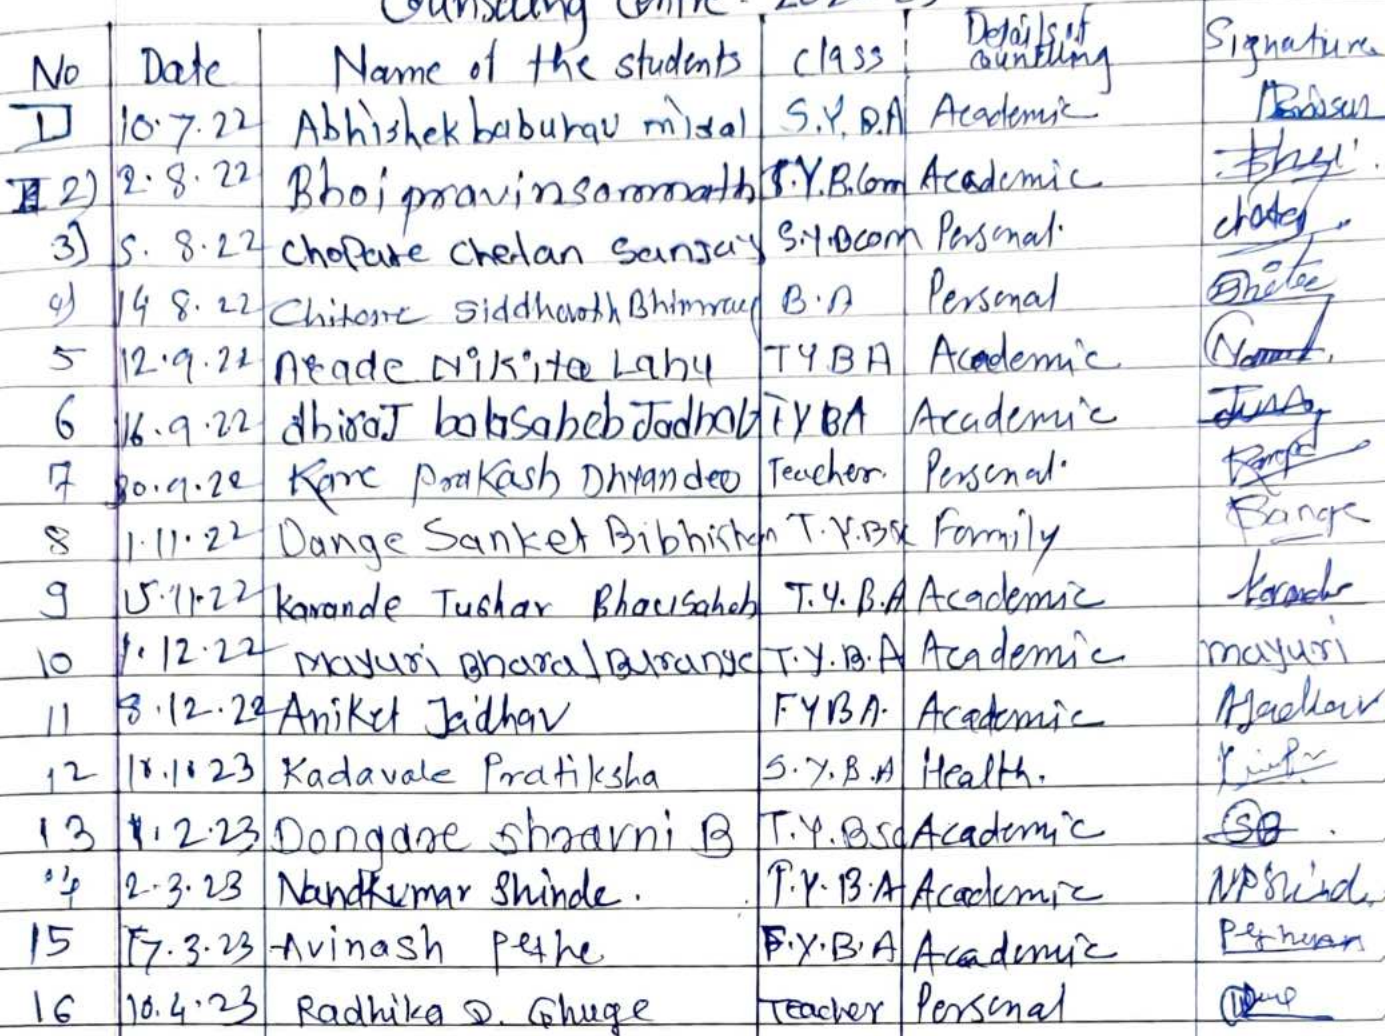 Counseling Centre
No Date Name of the students class Details of countling Signature
1) 10.7.22 Abhishek baburav misal S.Y.B.A Academic
2) 2.8.22 Bhoi pravin somnath T.Y.B.Com Academic
3) 5.8.22 Chopare Chetan Sanjay S.Y.Bcom Personal.
4) 14 8.22 Siddharth Bhimrao B.A Personal
5 12.9.22 Nikita Lahu TYBA Academic
6 16.9.22 dhiraJ balasaheb Jadhav TYBA Academic
7 30.9.22 Kare Prakash Dhyandeo Teacher. Personal.
8 1.11.22 Dange Sanket Bibhishan T.Y.BSc Family
9 15.11.22 Karande Tushar Bhausaheb T.Y.B.A Academic
10 1.12.22 Mayuri Bharat T.Y.B.A Academic mayuri
11 8.12.22 Aniket Jadhav FYBA. Academic AJadhav
12 23 Kadavale Pratiksha S.Y.B.A Health.
13 1.2.23 Dongare Shravni B T.Y.BSc Academic SB
14 2.3.23 Nandkumar Shinde. F.Y.B.A Academic NPShinde
15 17.3.23 Avinash Pethe F.Y.B.A Academic
16 10.4.23 Radhika D. Ghuge Teacher Personal